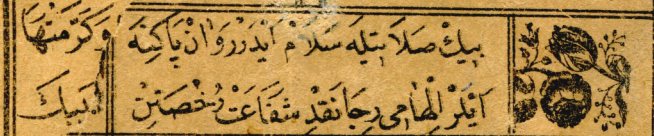 بيك صلاتيله سلام ايدر روان پاكنه
ايلر الهامى رجا نقد شفاعت رخصتن